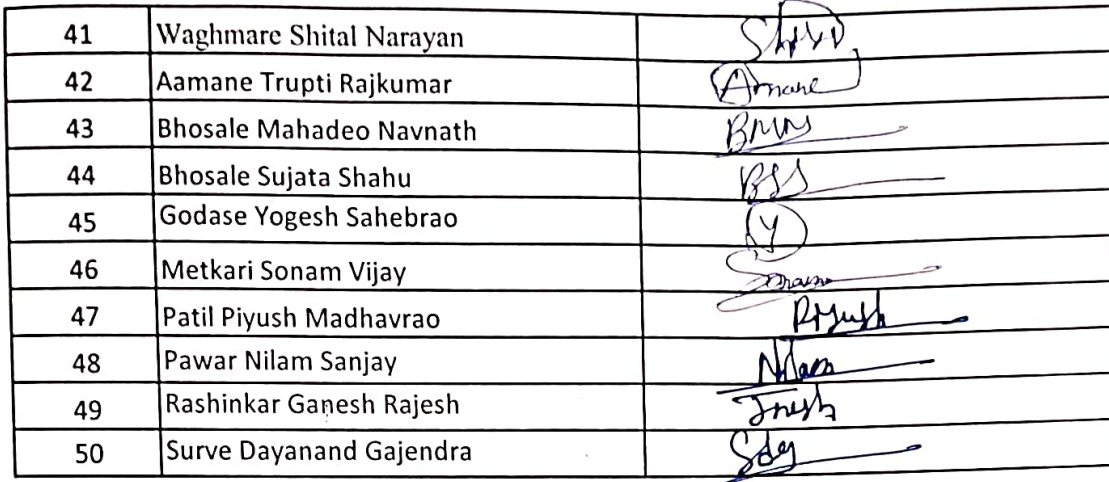 41 Waghmare Shital Narayan
42 Aamane Trupti Rajkumar Amane
43 Bhosale Mahadeo Navnath BMN
44 Bhosale Sujata Shahu BSS
45 Godase Yogesh Sahebrao Y
46 Metkari Sonam Vijay
47 Patil Piyush Madhavrao Piyush
48 Pawar Nilam Sanjay Nilam
49 Rashinkar Ganesh Rajesh
50 Surve Dayanand Gajendra